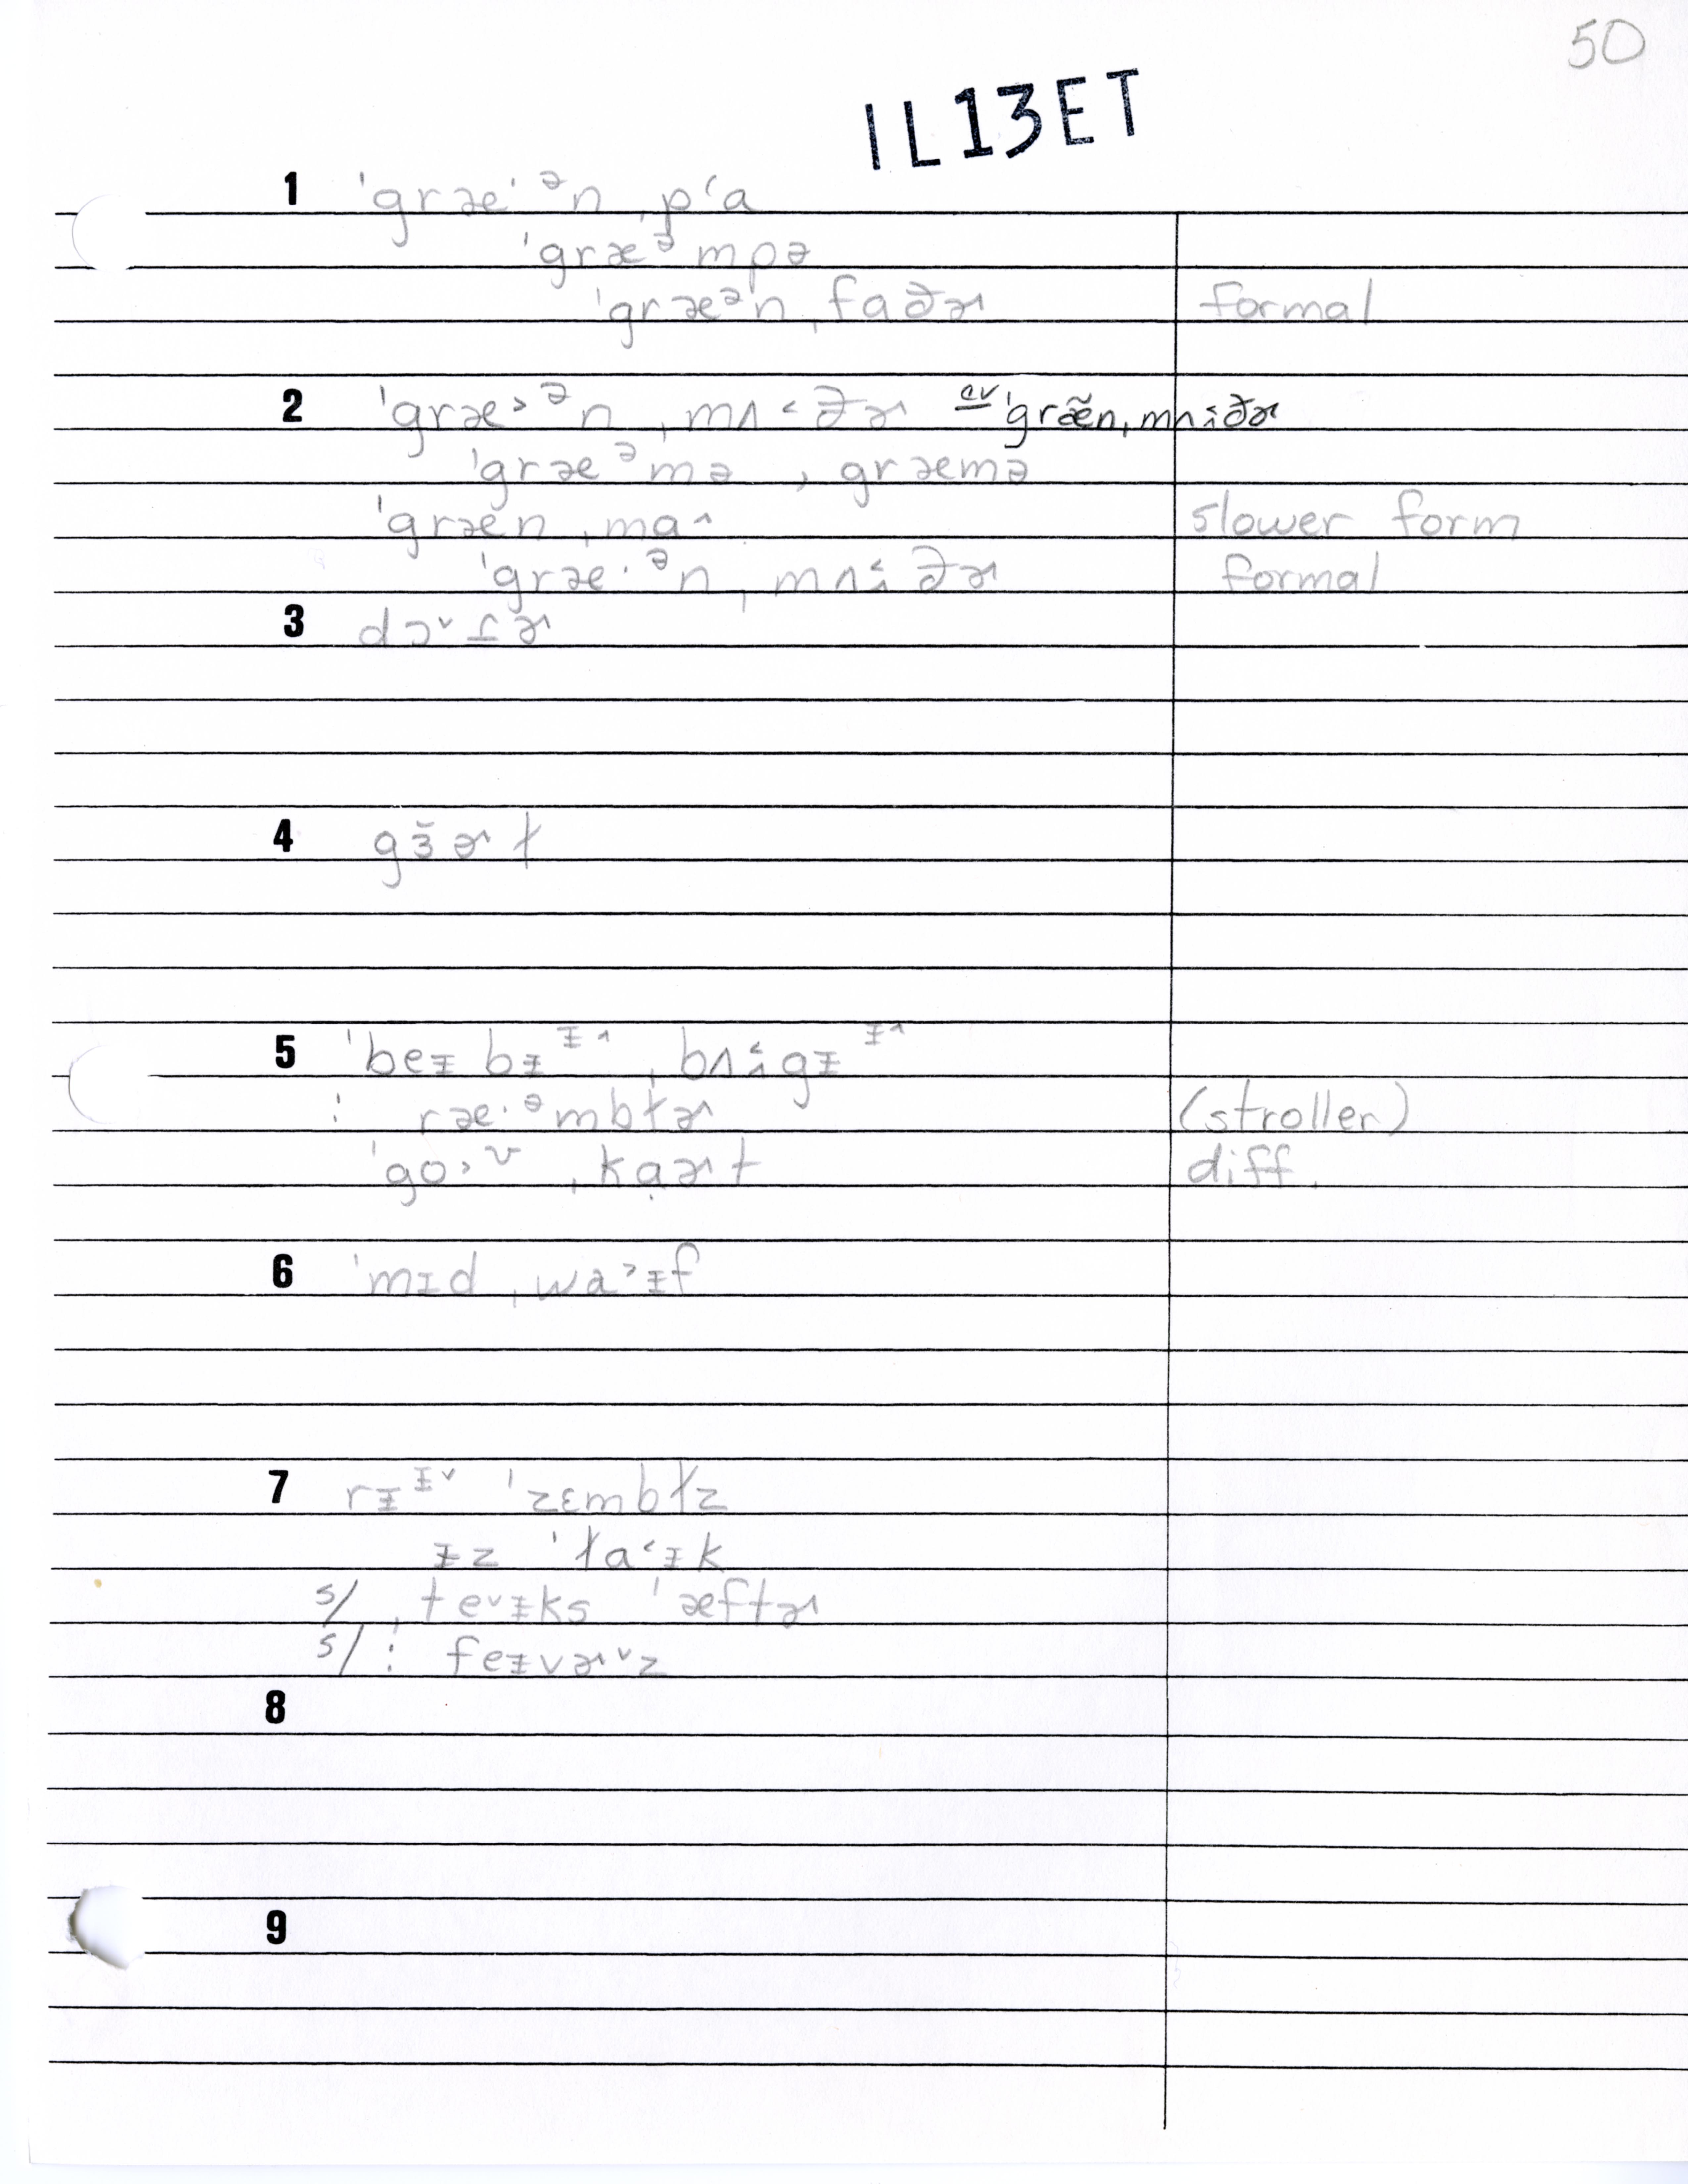 50
IL13ET
1 ˈgræ· ᵊn ˌpʻa
ˈgræᵊmpə
ˈgræᵊn ˌfaðɚ formal
2 ˈgræ˃ ᵊn ˌmʌ˂ðɚ cv ˈgræ̃n ˌmʌ˂̣ðɚ
ˈgræᵊmə , græmə
ˈgræn ˌma˄ slower form
ˈgræ· ᵊn ˌmʌ˂̣ðɚ formal
3 dɔ˅ɾ̱ɚ
4 gɜ̆ɚɫ
5 ˈbeɪbɪᶦ˄ ˌbʌ˂̣gɪᶦ˄
: ræ·ᵊmbɫɚ (stroller)
ˈgo˃ᶷ ˌkɑ̣ɚt diff.
6 ˈmɪd ˌwa˃ɪf
7 rɪᶦ˅ ˈzɛmbɫz
ɪz ˈɫa˂ɪk
s/ ˌte˅ɪks ˈæftɚ
s/ : feɪvɚ˅z
8
9